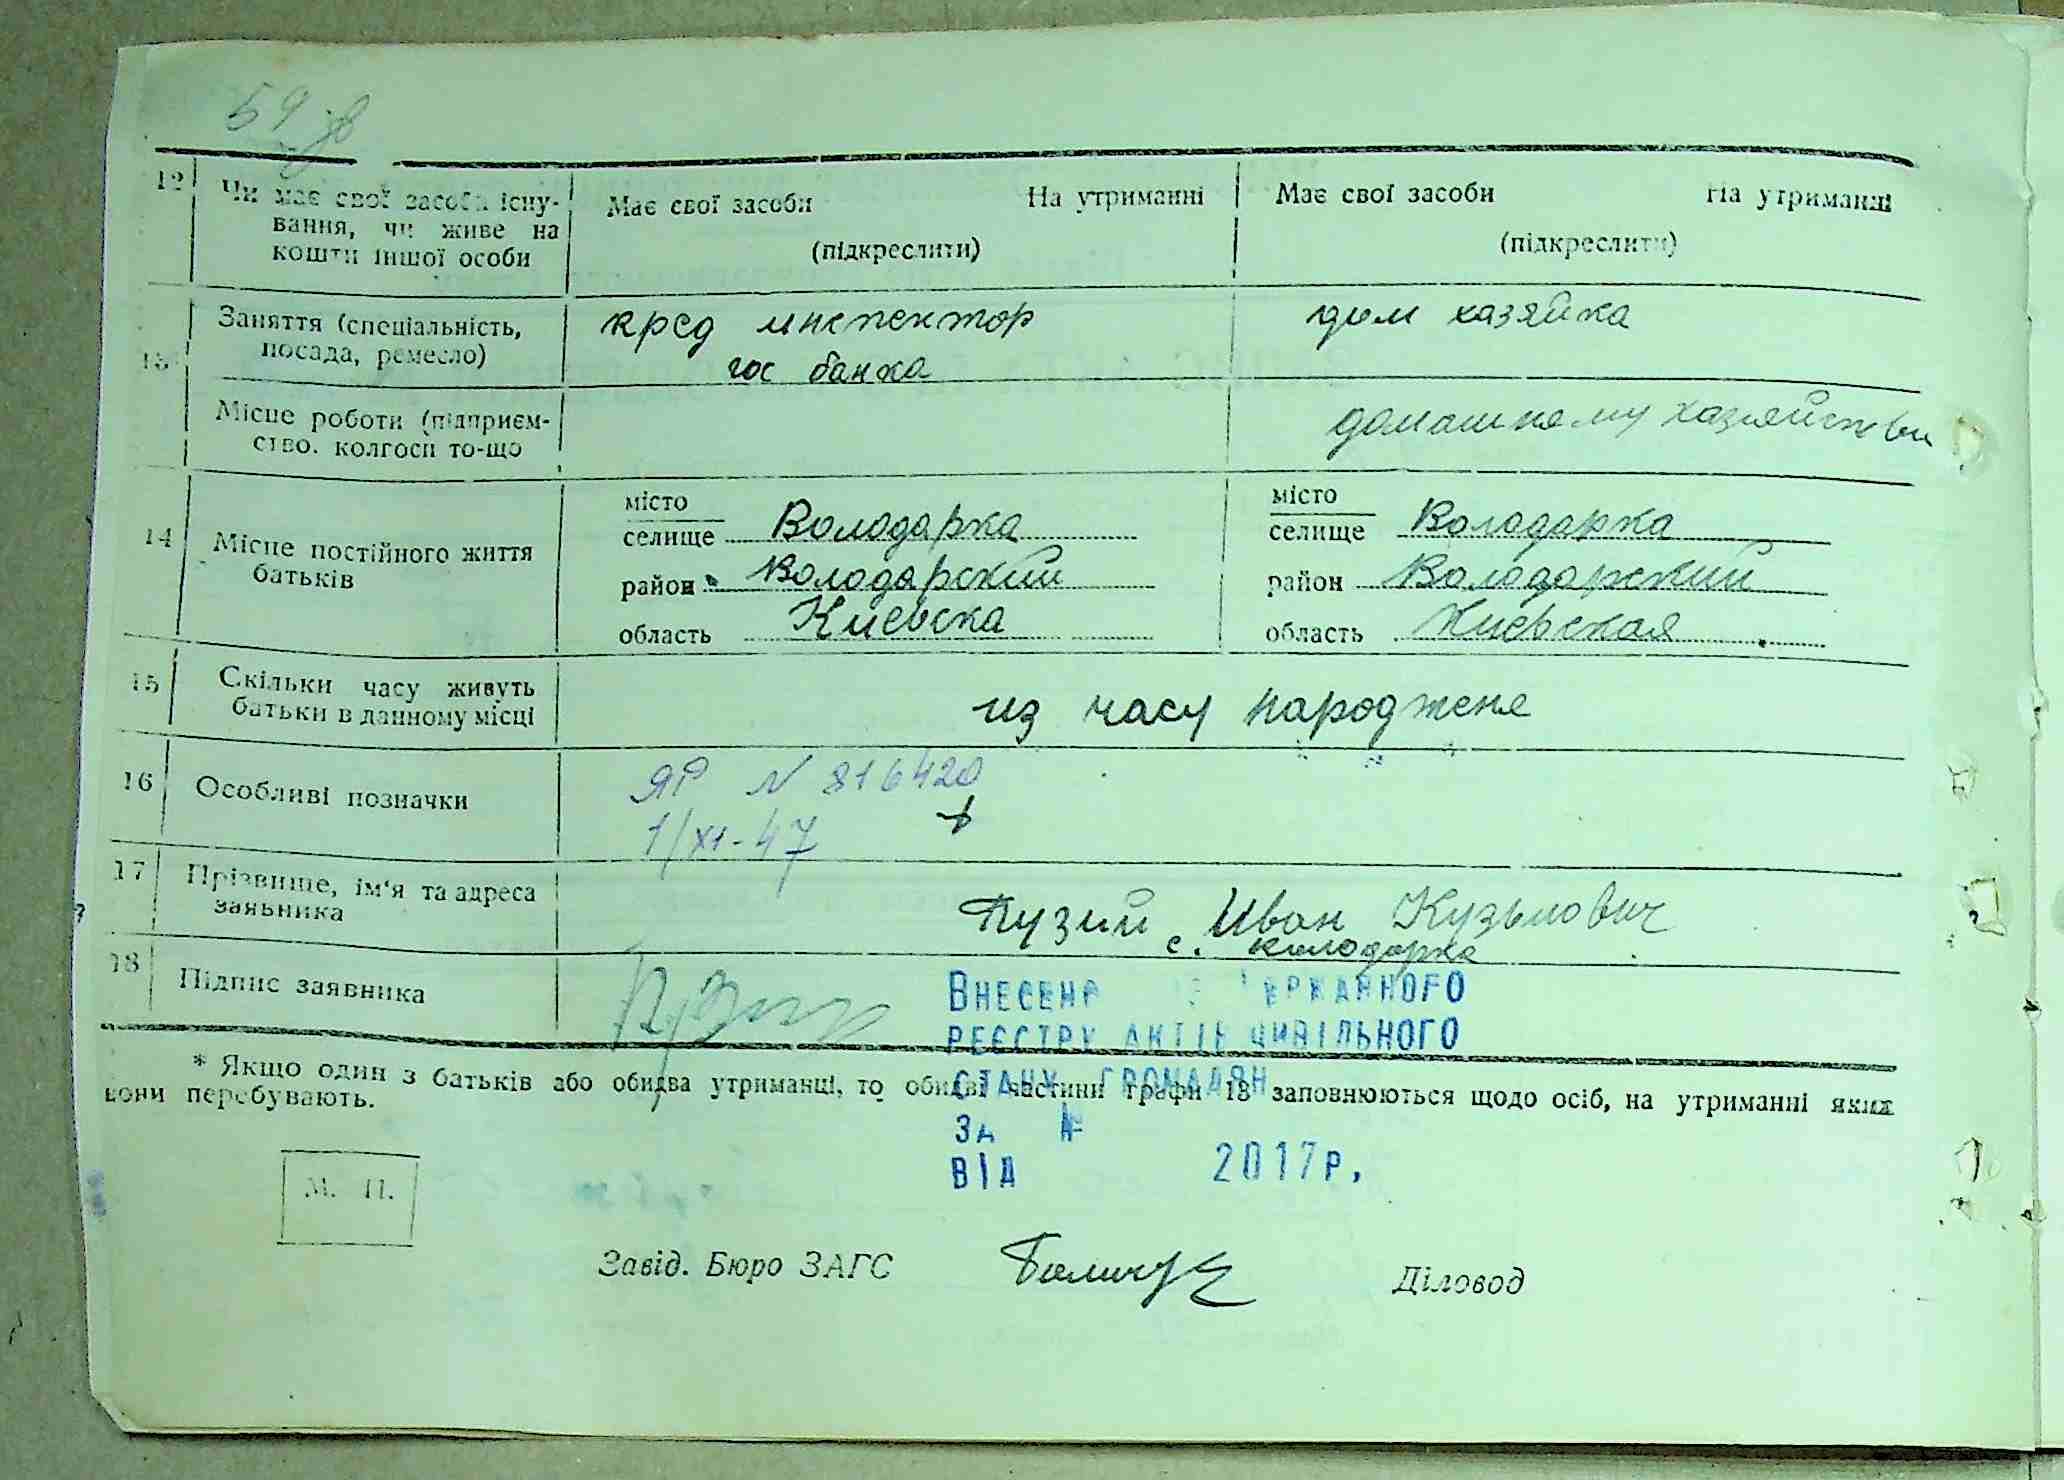 59
12 Чи має свої засоби існу- Має свої засоби На утриманні Має свої засоби На утриманні
вання, чи живе на
кошти іншої особи (підкреслити) (підкреслити)
13 Заняття (спеціальність, кред инспектор дом хазяйка
посада, ремесло) гос банка
Місце роботи (підприєм- домашнему хазяйстви
ство. колгосп то-що
14 Місце постійного життя
батьків
місто
селище Володарка
район Володарский
область Киевска
місто
селище Володарка
район Володарский
область Киевская
15 Скільки часу живуть из часу народженя
батьки в данному місці
16 Особливі позначки ЯР N 816420
1/XI-47
17 Прізвище, ім'я та адреса Пузий Иван Кузьмович
заявника с. Володарка
18 Підпис заявника
Внесено Державного
реєстру актів цивільного
стану громадян
за №
від 2017р.
* Якщо один з батьків або обидва утриманці, то обидві частини графи 13 заповнюються щодо осіб, на утриманні яких
вони перебувають.
М. П.
Завід. Бюро ЗАГС Діловод